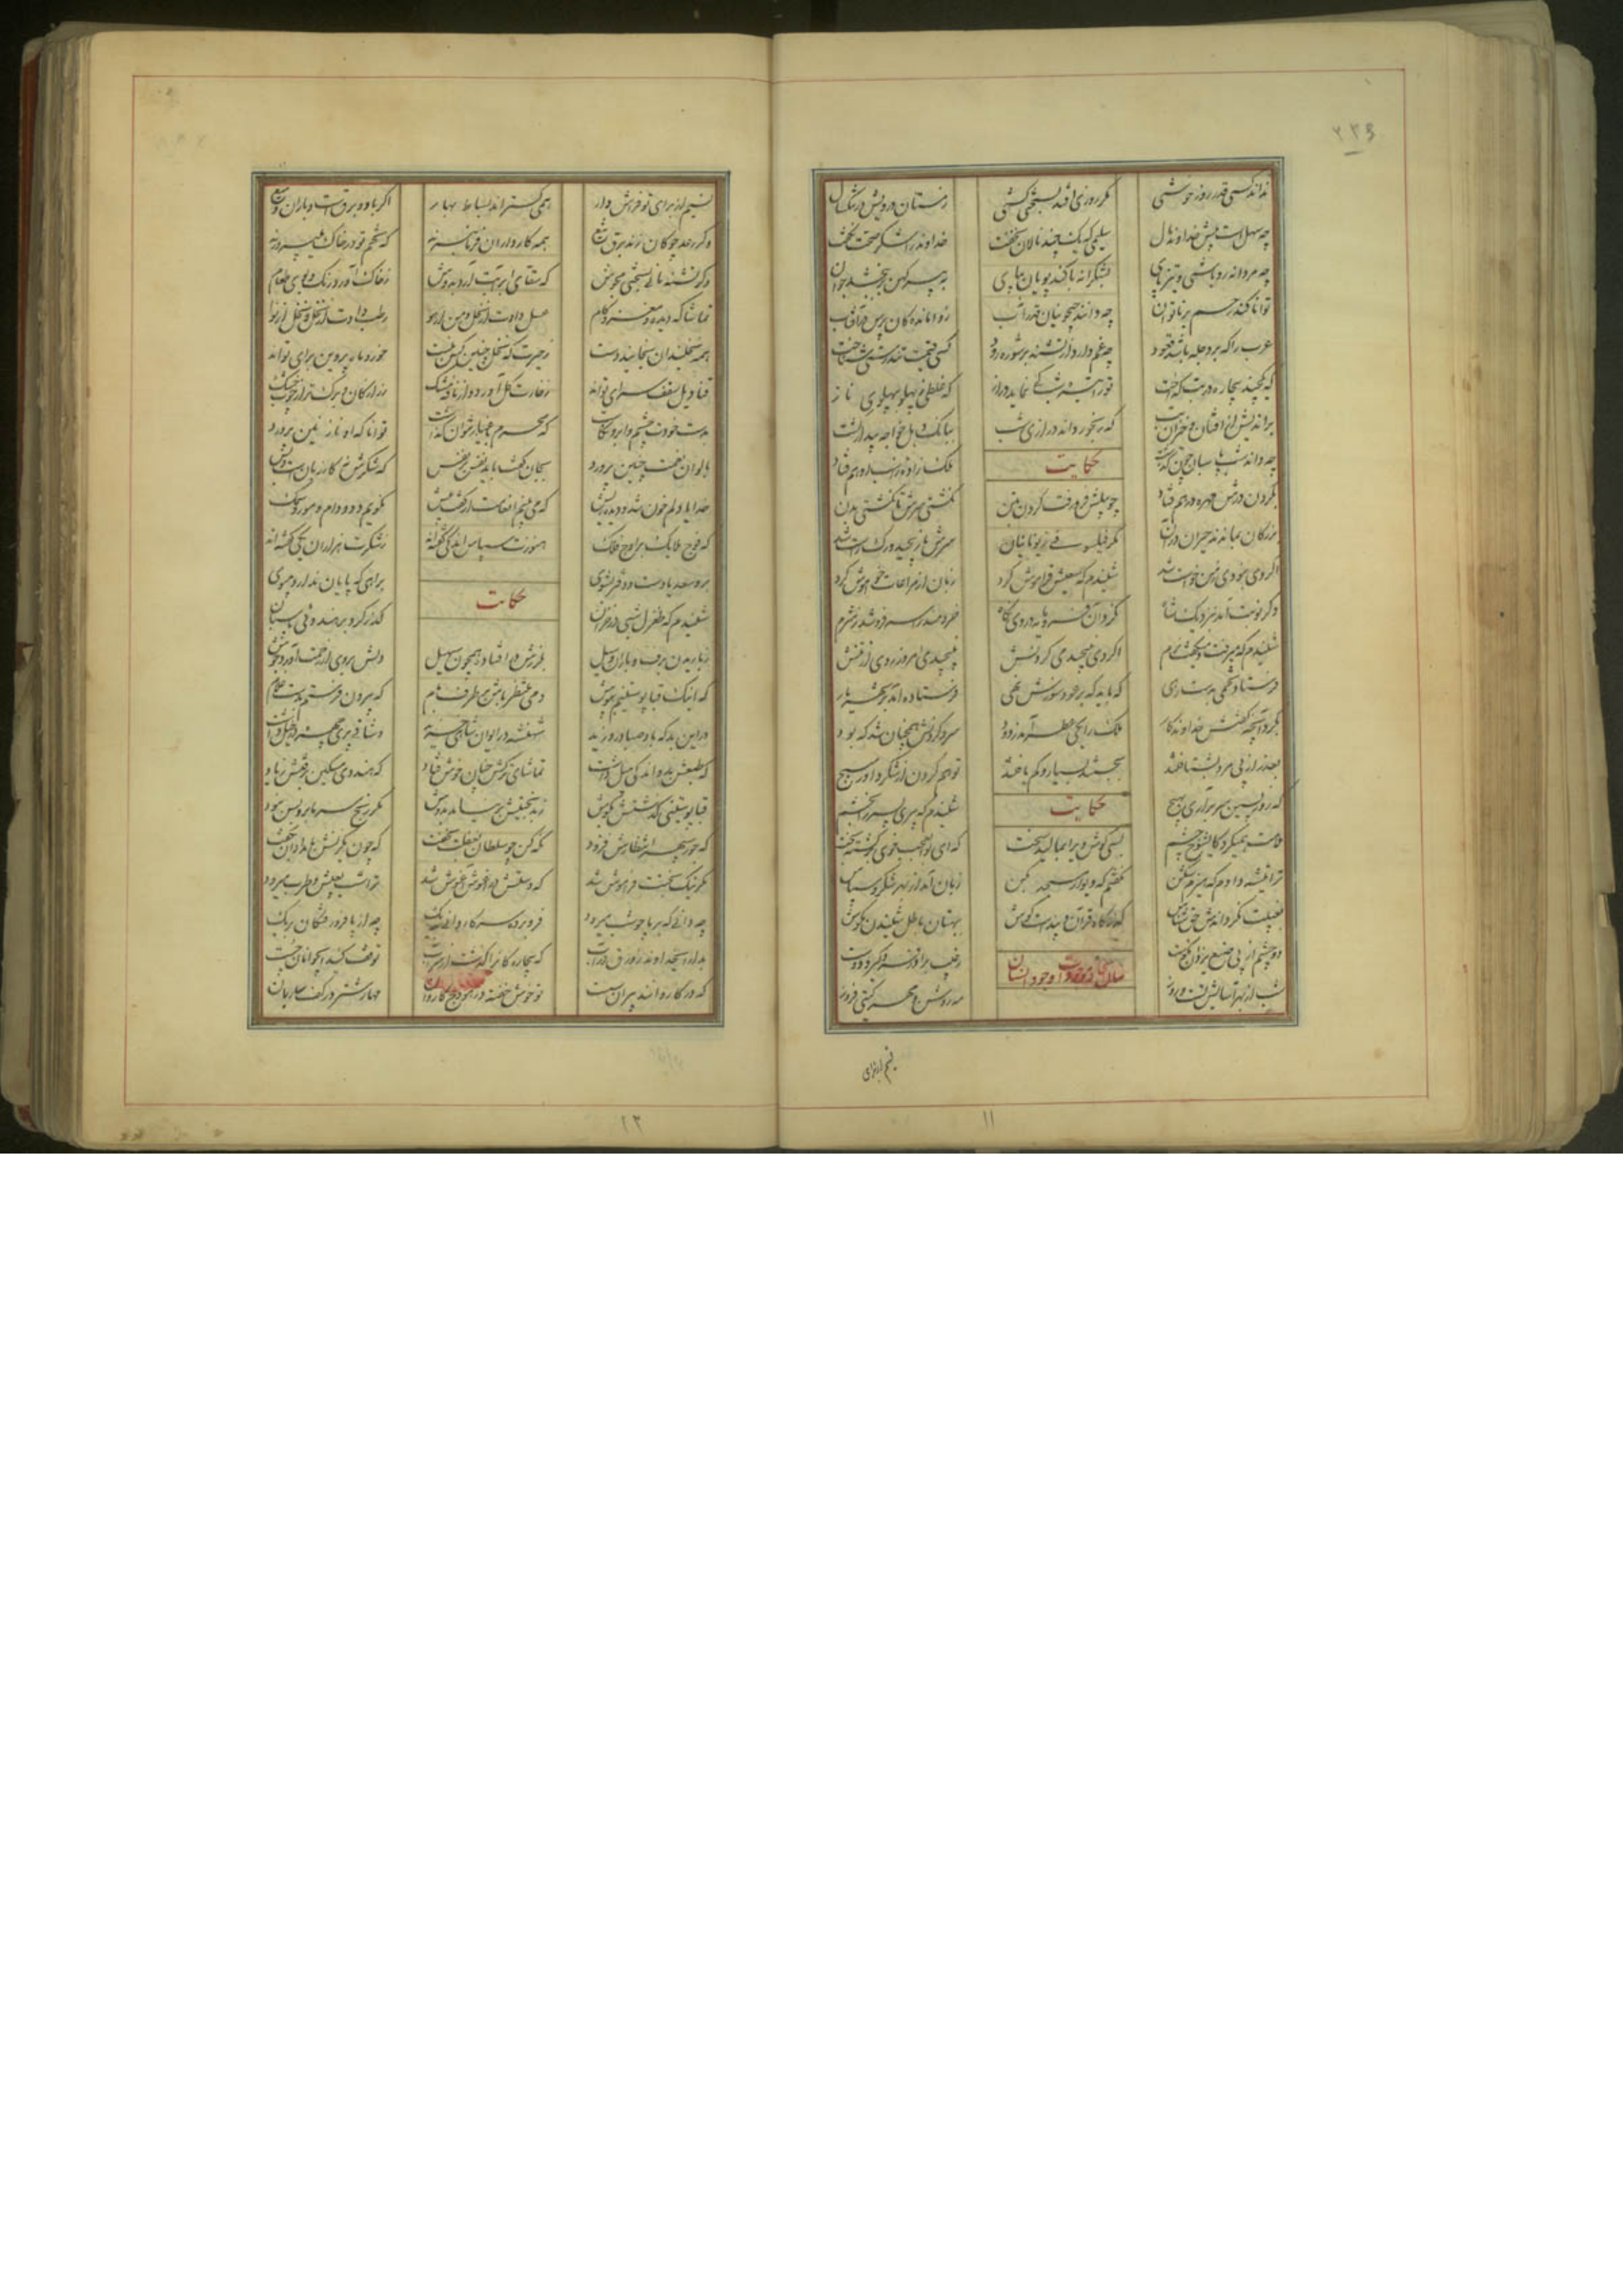 نداند کسی قدر روز خوشی
مگر روزی افتد بسختی کشی
زمستان درویش در تنگ سال
چه سهل است پیش خداوند مال
سلیمی که یک چند نالان نخفت
خداوند را شکر صحت نگفت
چو مردانه رو باشی و تیز پای
بشکرانه با کند پویان بپای
به پیر کهن بر ببخشد جوان
توانا کند رحم بر ناتوان
چه دانند جیحونیان قدر آب
ز وامانده کان پرس در آفتاب
عرب را که بر دجله باشد قعود
چه غم دارد از تشنه بر شوره رود
کسی قیمت تندرستی شناخت
که یکچند بیچاره در تب گداخت
ترا تیره شب کی نماید دراز
که غلطی ز پهلو بپهلوی ناز
براندیش از افتان و خیزان تب
که رنجور داند درازی شب
ببانگ دهل خواجه بیدار گشت
چه داند شب پاسبان چون گذشت
حکایت
ملک زاده ز اسب ادهم فتاد
بگردن درش مهره در هم فتاد
چو پیلش فرو رفت گردن بتن
نگشتی سرش تا نگشتی بدن
بزرگان بماندند حیران در آن
مگر فیلسوفی ز یونانیان
سرش باز پیچید و رگ راست شد
اگر وی نبودی زمن خواست شد
شنیدم که سعیش فراموش کرد
زبان از مراعات خاموش کرد
دگر نوبت آمد بنزدیک شاه
نکرد آن فرومایه در وی نگاه
خردمند را سر فرو شد ز شرم
شنیدم که میرفت و میگفت نرم
اگر دی نپیچیدمی گردنش
نپیچیدی امروز روی از منش
فرستاد تخمی بدست رهی
که باید که بر عود سوزش نهی
فرستاده آمد بر شهریار
بکرد آنچه گفتش خداوندگار
ملک را یکی عطسه آمد ز دود
سر و گردنش همچنان شد که بود
بعذر از پی مرد بشتافتند
بجستند بسیار و کم یافتند
تو هم گردن از شکر داور مپیچ
که روز پسین سر بر آری بهیچ
حکایت
شنیدم که پیری پسر را بخشم
ملامت همیکرد کای شوخ چشم
بسی گوش ویرا بمالید سخت
که ای بوالعجب خوی برگشته بخت
ترا تیشه دادم که هیزم شکن
نگفتم که دیوار مسجد بکن
زبان آمد از بهر شکر و سپاس
بغیبت نگرداندش حق شناس
گذرگاه قرآن و پندست گوش
ببهتان باطل شنیدن مکوش
دو چشم از پی صنع یزدان نکوست
وجود انسان
ز عیب برادر فرو گیر و دوست
شب از بهر آسایش تست و روز
مه روشن و مهر گیتی فروز
نسیم از برای
۱۱
نسیم از برای تو فراش وار
همی گستراند بساط بهار
اگر باد و برق است و باران و میغ
وگر رعد چوگان زند برق تیغ
همه کارداران فرمانبرند
که تخم تو در خاک می پرورند
وگر تشنه مانی بسختی مجوش
که سقای ابر آبت آرد بدوش
ز خاک آورد رنگ و بوی و طعام
تماشاگه دیده و مغز و کام
عسل دادت از نحل و من از هوا
رطب دادت از نخل و نخل از نوا
همه نخلبندان بخایند دست
ز حیرت که نخلی چنین کس نبست
خور و ماه و پروین برای تواند
قنادیل سقف سرای تواند
ز خارت گل آورد و از نافه مشک
زر از کان و برگ تر از چوب خشک
بدست خودت چشم و ابرو نگاشت
که محرم باغیار نتوان گذاشت
توانا که او نازنین پرورد
بالوان نعمت چنین پرورد
بجان گفت باید نفس بر نفس
که شکرش نه کار زبان است و بس
خدایا دلم خون شد و دیده ریش
که می بینم انعامت از گفت بیش
نگویم دد و دام و مور و سمک
که فوج ملایک بر اوج فلک
هنوزت سپاس اندکی گفته اند
ز شکرت هزاران یکی گفته اند
برو سعدیا دست و دفتر بشوی
براهی که پایان ندارد مپوی
حکایت
شنیدم که طغرل شبی در خزان
گذر کرد بر هندوی پاسبان
ز باریدن برف و باران و سیل
بلرزش در افتاده همچون سهیل
دلش بروی از رحمت آورد جوش
که اینک قبا پوستینم بپوش
دمی منتظر باش بر طرف بام
که بیرون فرستم بدست غلام
در این بد که باد صبا در وزید
شهنشه در ایوان شاهی خزید
وشاقی پری چهره در خیل داشت
که طبعش بدو اندکی میل داشت
تماشای ترکش چنان خوش فتاد
که هندوی مسکین برفتش ز یاد
قبا پوستینی گذشتش بگوش
ز بدبختیش در نیامد بدوش
مگر رنج سرما برو بس نبود
که جور سپهر انتظارش فزود
نگه کن چو سلطان بغفلت بخفت
که چوبک زنش بامدادان چه گفت
مگر نیک بختت فراموش شد
که دستت در آغوش آغوش شد
ترا شب بعیش و طرب میرود
چه دانی که بر ما چه شب میرود
فرو برده سر کاروانی بدیگ
چه از پا فرو رفتگان بریگ
بدار ای خداوند زورق بر آب
که بیچاره گان را گذشت از سر آب
توقف کنید ای جوانان چست
که در کاروانند پیران سست
تو خوش خفته در هودج کاروان
مهار شتر در کف ساربان
۱۲